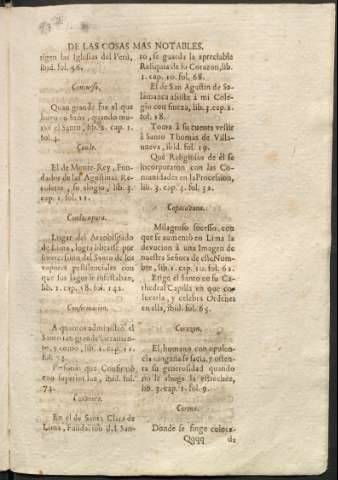 DE LAS COSAS MAS NOTABLES.
rigen las Iglesias del Perù,
ibid. fol. 56.
Concurso.
Quan grande fue el que
huvo en Saña, quando mu-
riò el Santo, lib. 2. cap. 1.
fol.
Conde.
El de Monte-Rey, Fun-
dador de las Agustinas Re-
coletas, su elogio, lib. 3.
cap. 1. fol. 11.
Lugar del Arzobispado
de Lima, logra librarse por
intercession del Santo de los
vapores pestilenciales con
que sus lagos le infestaban,
lib. 1. cap. 18. fol. 142.
Confirmacion.
A quantos administrò el
Santo tan grande Sacramen-
to, y como, lib. 1. cap. 11.
fol. 73.
Personas que Confirmò
con fol.
74.
En el de Santa Clara de
Lima, Fundacion d.l San-
to, se guarda la apreciable
Reliquia de su Corazon, lib.
2. cap. 10. fol. 68.
El de San Agustin de Sa-
lamanca assiste à mi Cole-
gio con fineza, lib. 3. cap. 2.
fol. 18.
Toma à su cuenta vestir
à Santo Thomas de Villa-
nueva, ibid. fol. 19.
Què Religiosos de èl se
incorporaron con las Co-
munidades en la Procession,
lib. 3. cap. 3. fol. 32.
Copacavana.
Milagroso sucesso, con
que se aumentò en Lima la
devocion à una Imagen de
nuestra Señora de este Nom-
bre, lib. 1. cap. 10. fol. 62.
Erige el Santo en su Ca-
thedral Capilla en que co-
locarla, y celebra Ordenes
en ella, ibid. fol. 65.
Corazon.
El humano con opulen-
cia ninguna se sacia, y osten-
ta su generosidad quando
no le ahoga la estrechèz,
lib. 3. cap. 1. fol. 9.
Corona.
Donde se finge coloca-
Qqqq
da